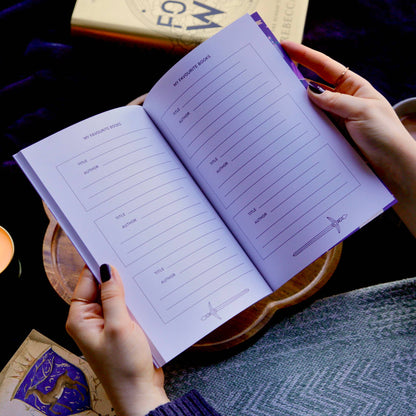 FO
W
REBECCA
MY FAVOURITE BOOKS
TITLE
AUTHOR
TITLE
AUTHOR
TITLE
AUTHOR
MY FAVOURITE BOOKS
TITLE
AUTHOR
TITLE
AUTHOR
TITLE
AUTHOR